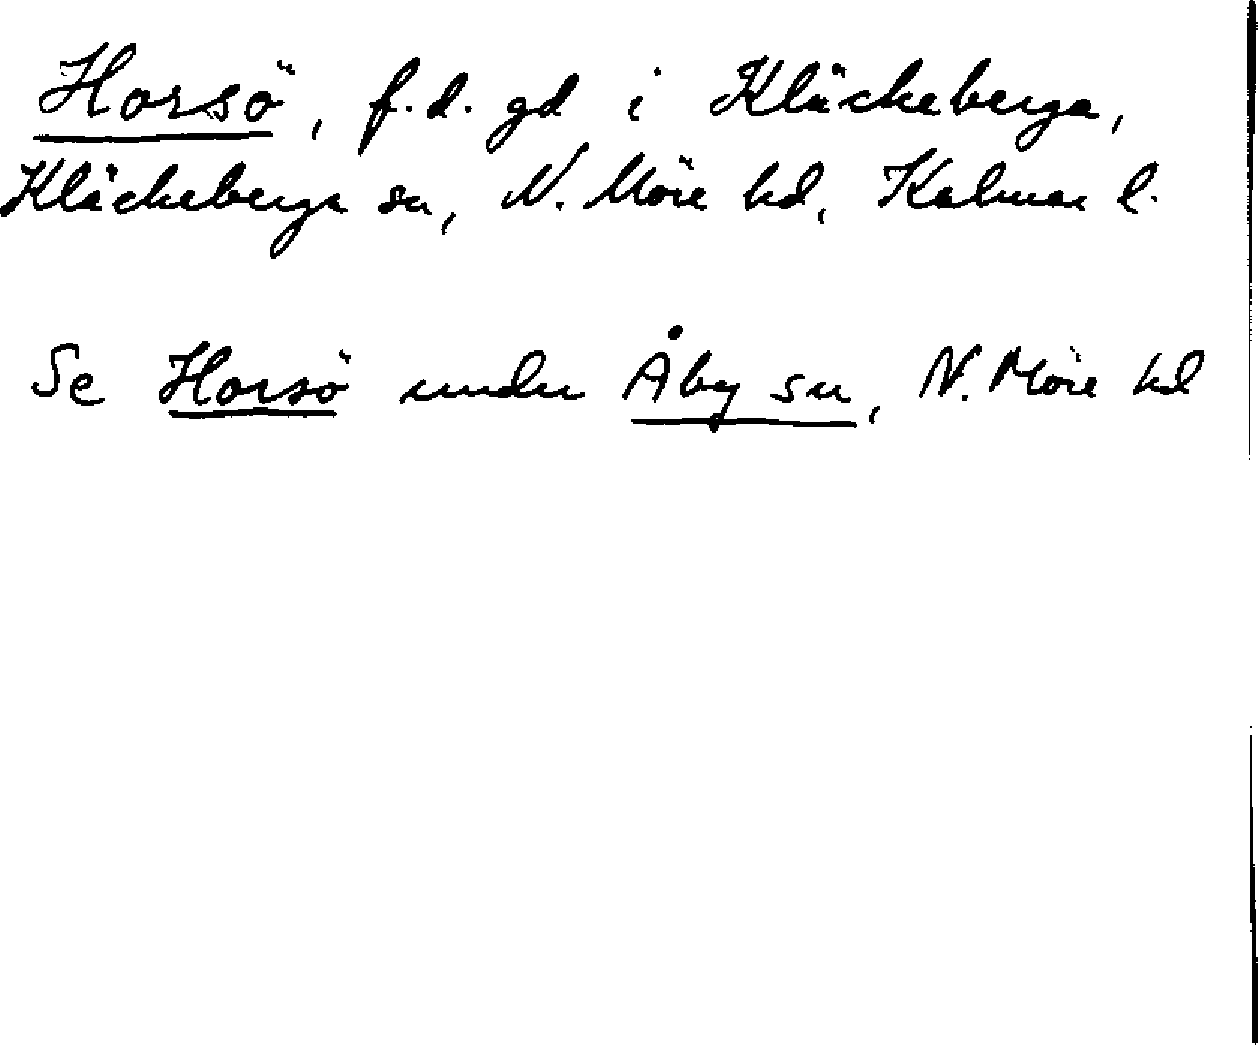 Horsö, f.d. gd i Kläckeberga,
Kläckeberga sn, N. Möre hd, Kalmar l.
Se Horsö under Åby sn, N. Möre hd